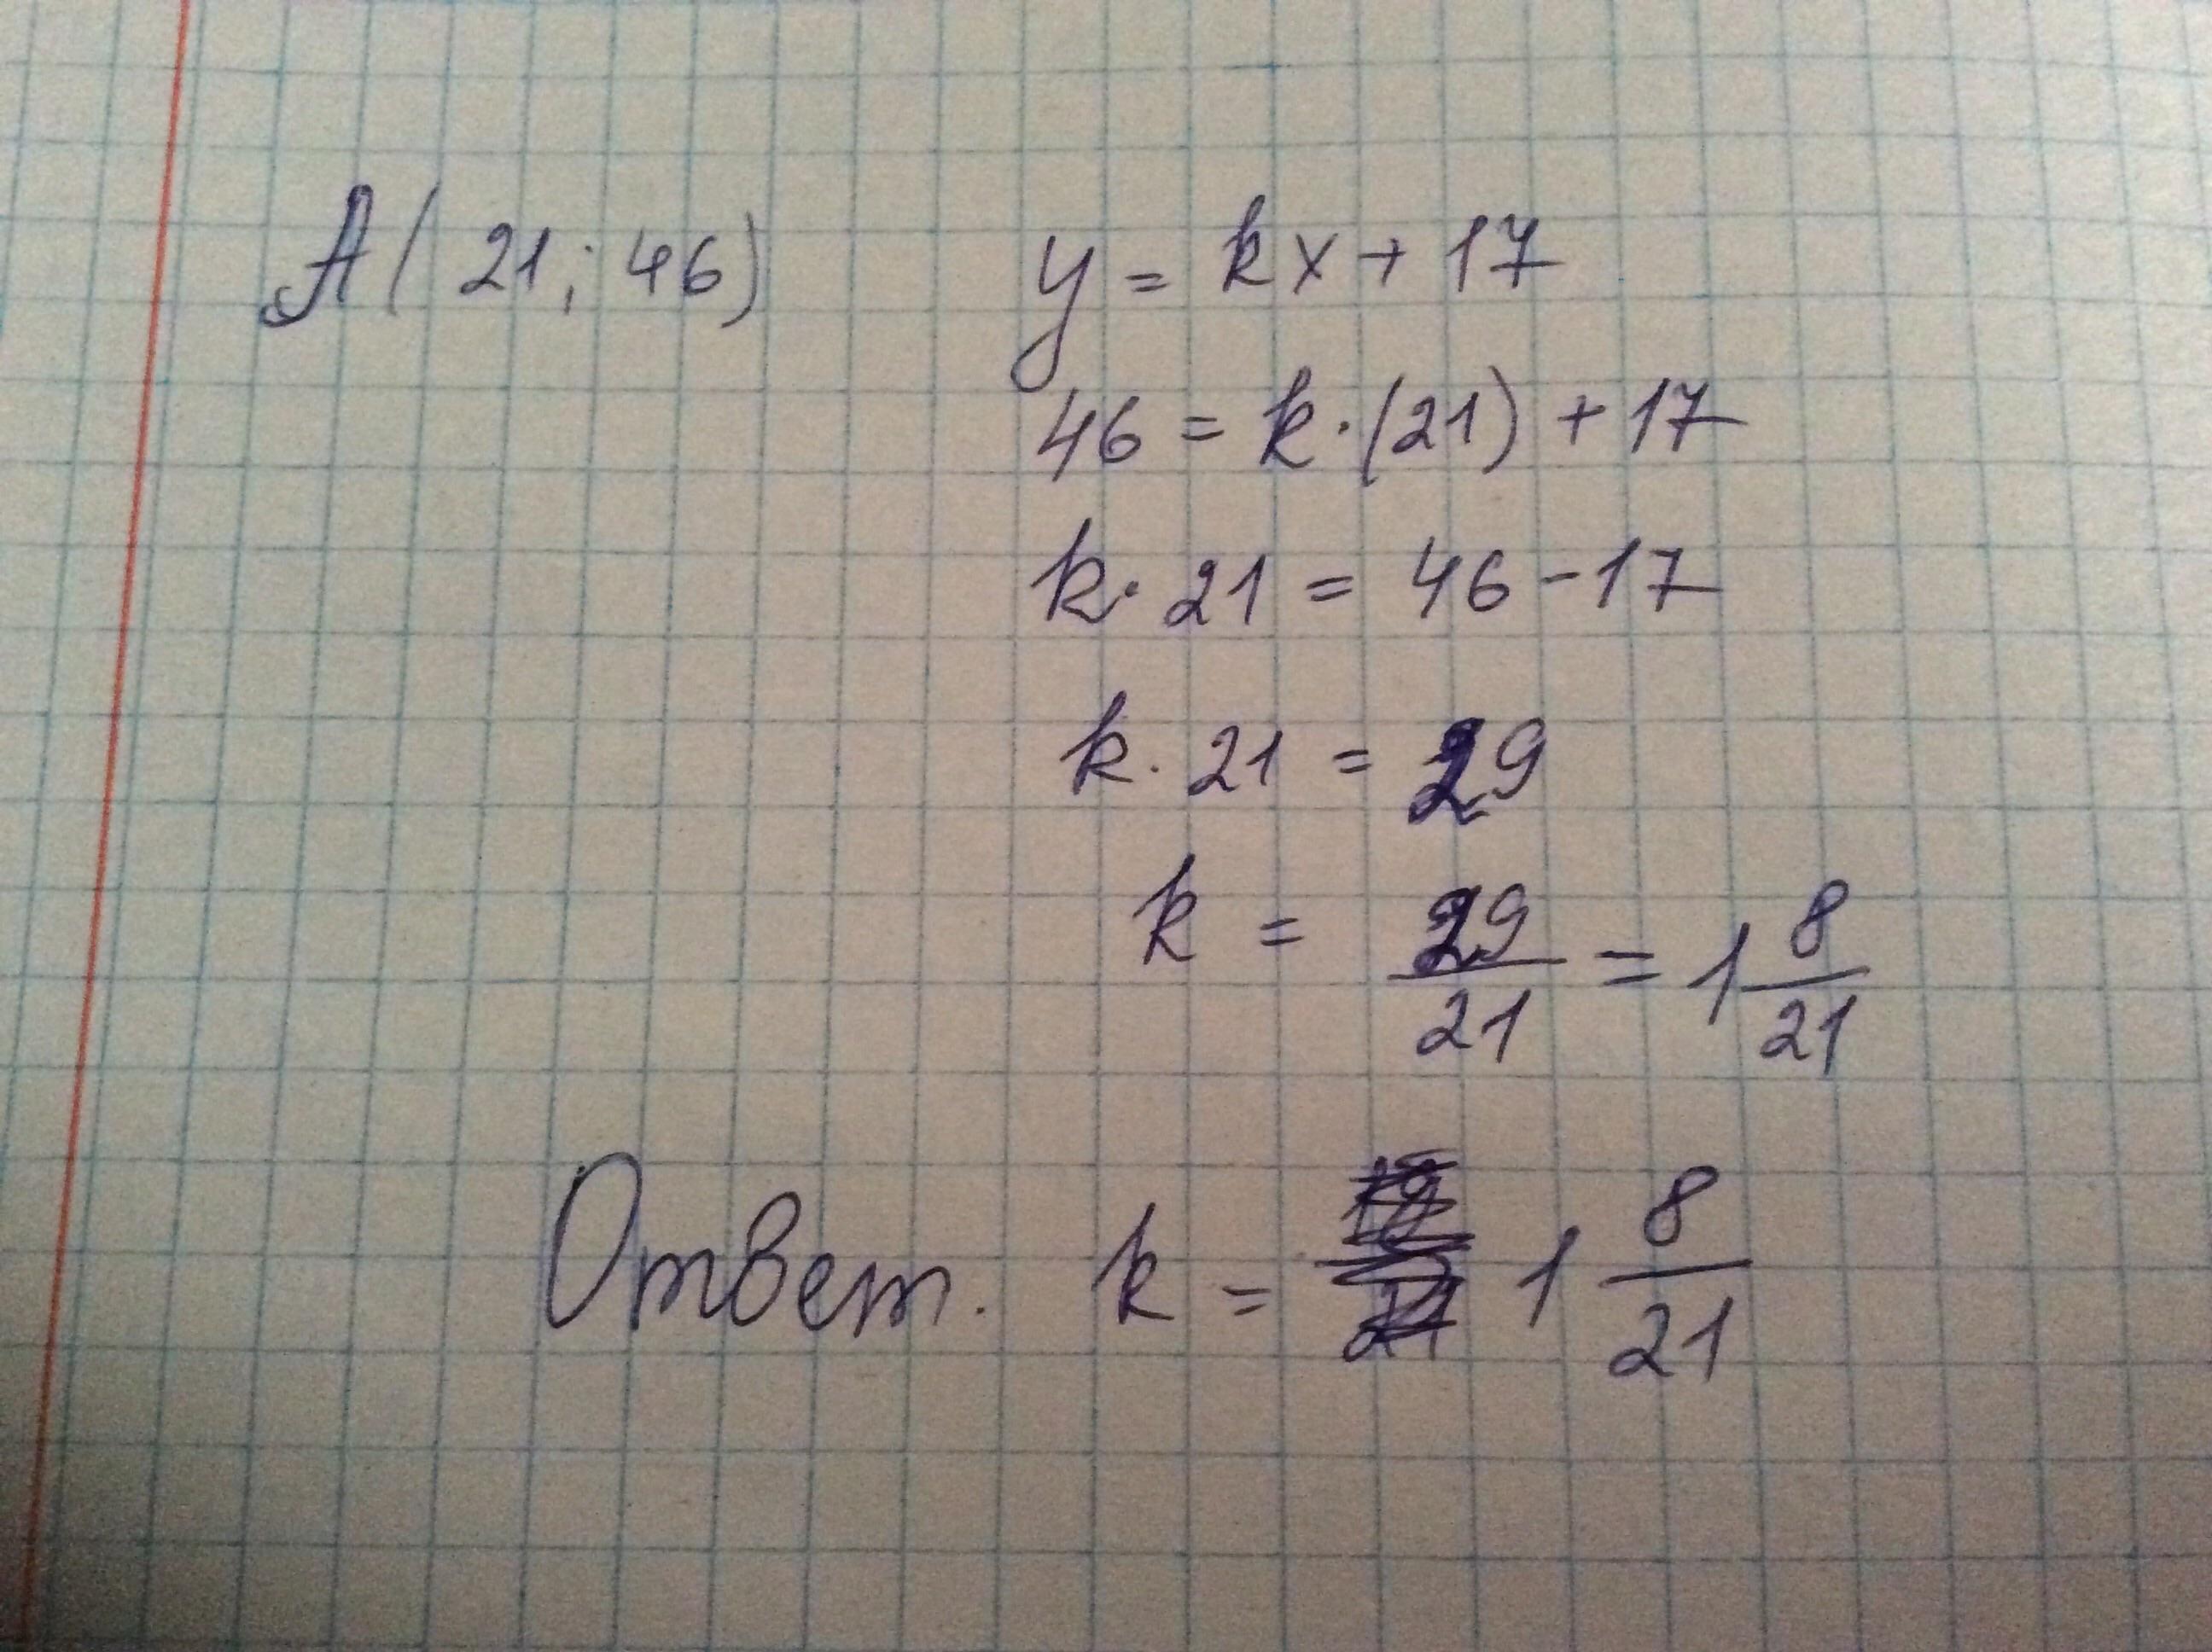 A(21; 46) y = kx + 17
46 = k·(21) + 17
k·21 = 46 - 17
k·21 = 29
k = 29/21 = 1 8/21
Ответ. k = 1 8/21